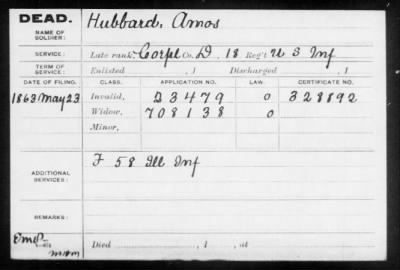 DEAD.
NAME OF SOLDIER: Hubbard, Amos
SERVICE: Late rank, Corpl Co. D, 18 Reg't U S Inf
TERM OF SERVICE: Enlisted , 1 Discharged , 1
DATE OF FILING. CLASS. APPLICATION NO. LAW. CERTIFICATE NO.
1863 May 23 Invalid, 23479 0 328892
Widow, 708138 0
Minor,
ADDITIONAL SERVICES: F 58 Ill Inf
REMARKS:
Died , 1 , at